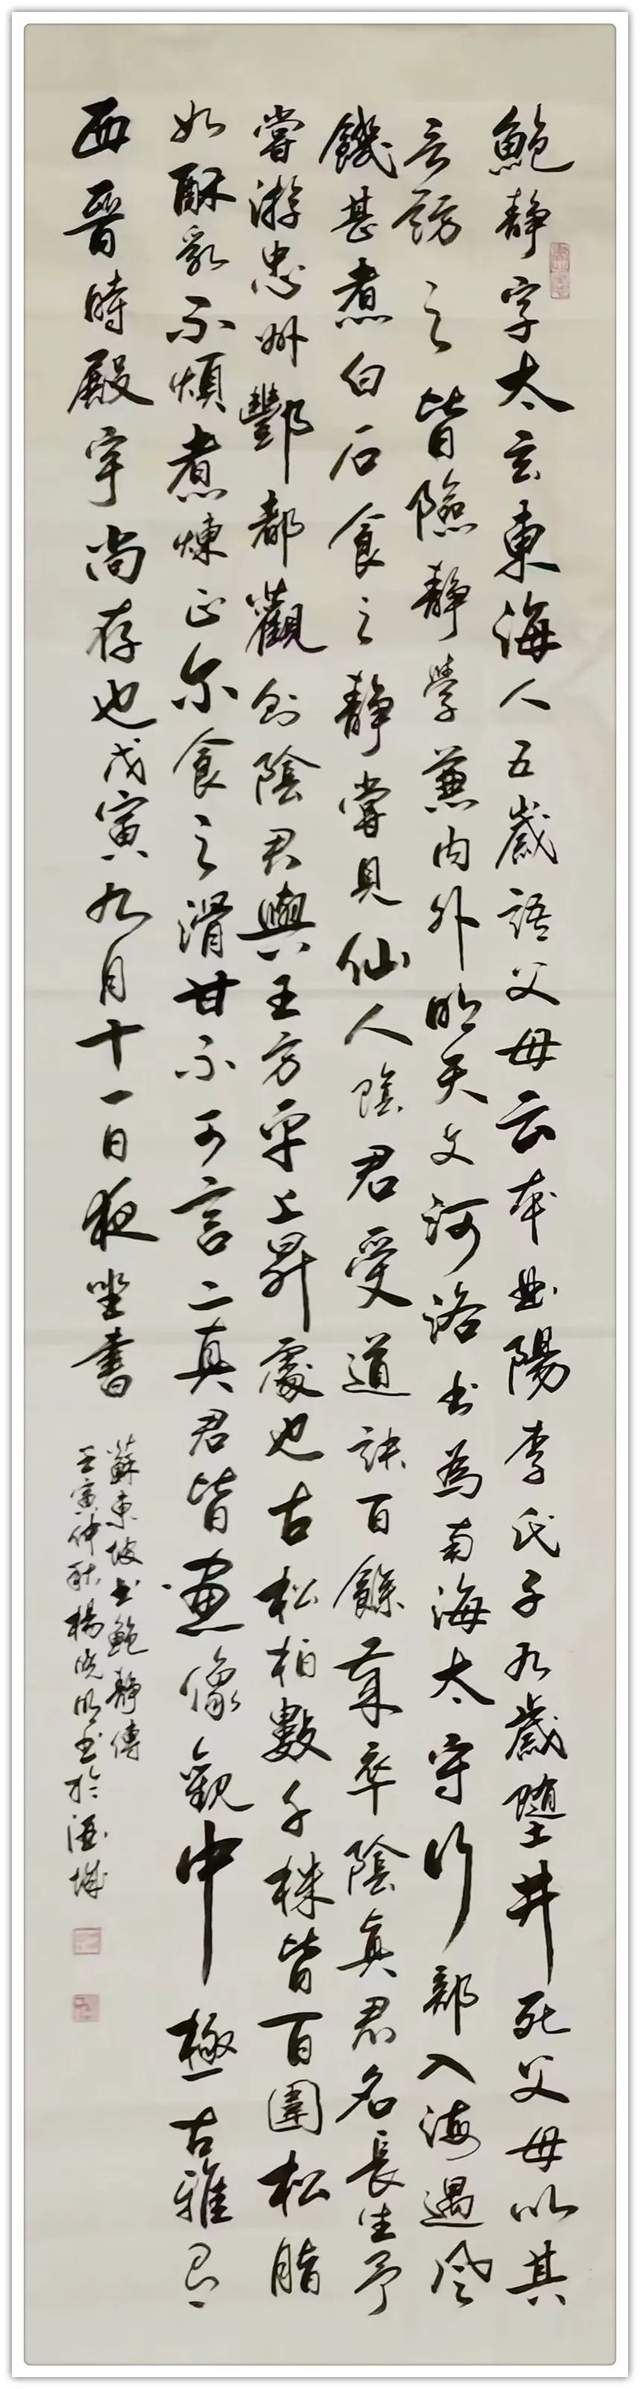 鮑靜字太玄東海人五歲語父母云本曲陽李氏子九歲墮井死父母以其
言訪之皆險靜學兼內外明天文河洛書為南海太守行部入海遇風
饑甚煮白石食之靜嘗見仙人陰君受道訣百餘年卒陰真君名長生予
嘗游忠州酆都觀則陰君與王方平上昇處也古松柏數千株皆百圍松脂
如酥乳不煩煮煉正尔食之滑甘不可言二真君皆畫像觀中極古雅云
西晉時殿宇尚存也戊寅九月十一日夜坐書
蘇東坡書鮑靜傳
壬寅仲秋楊曉明書於酒城